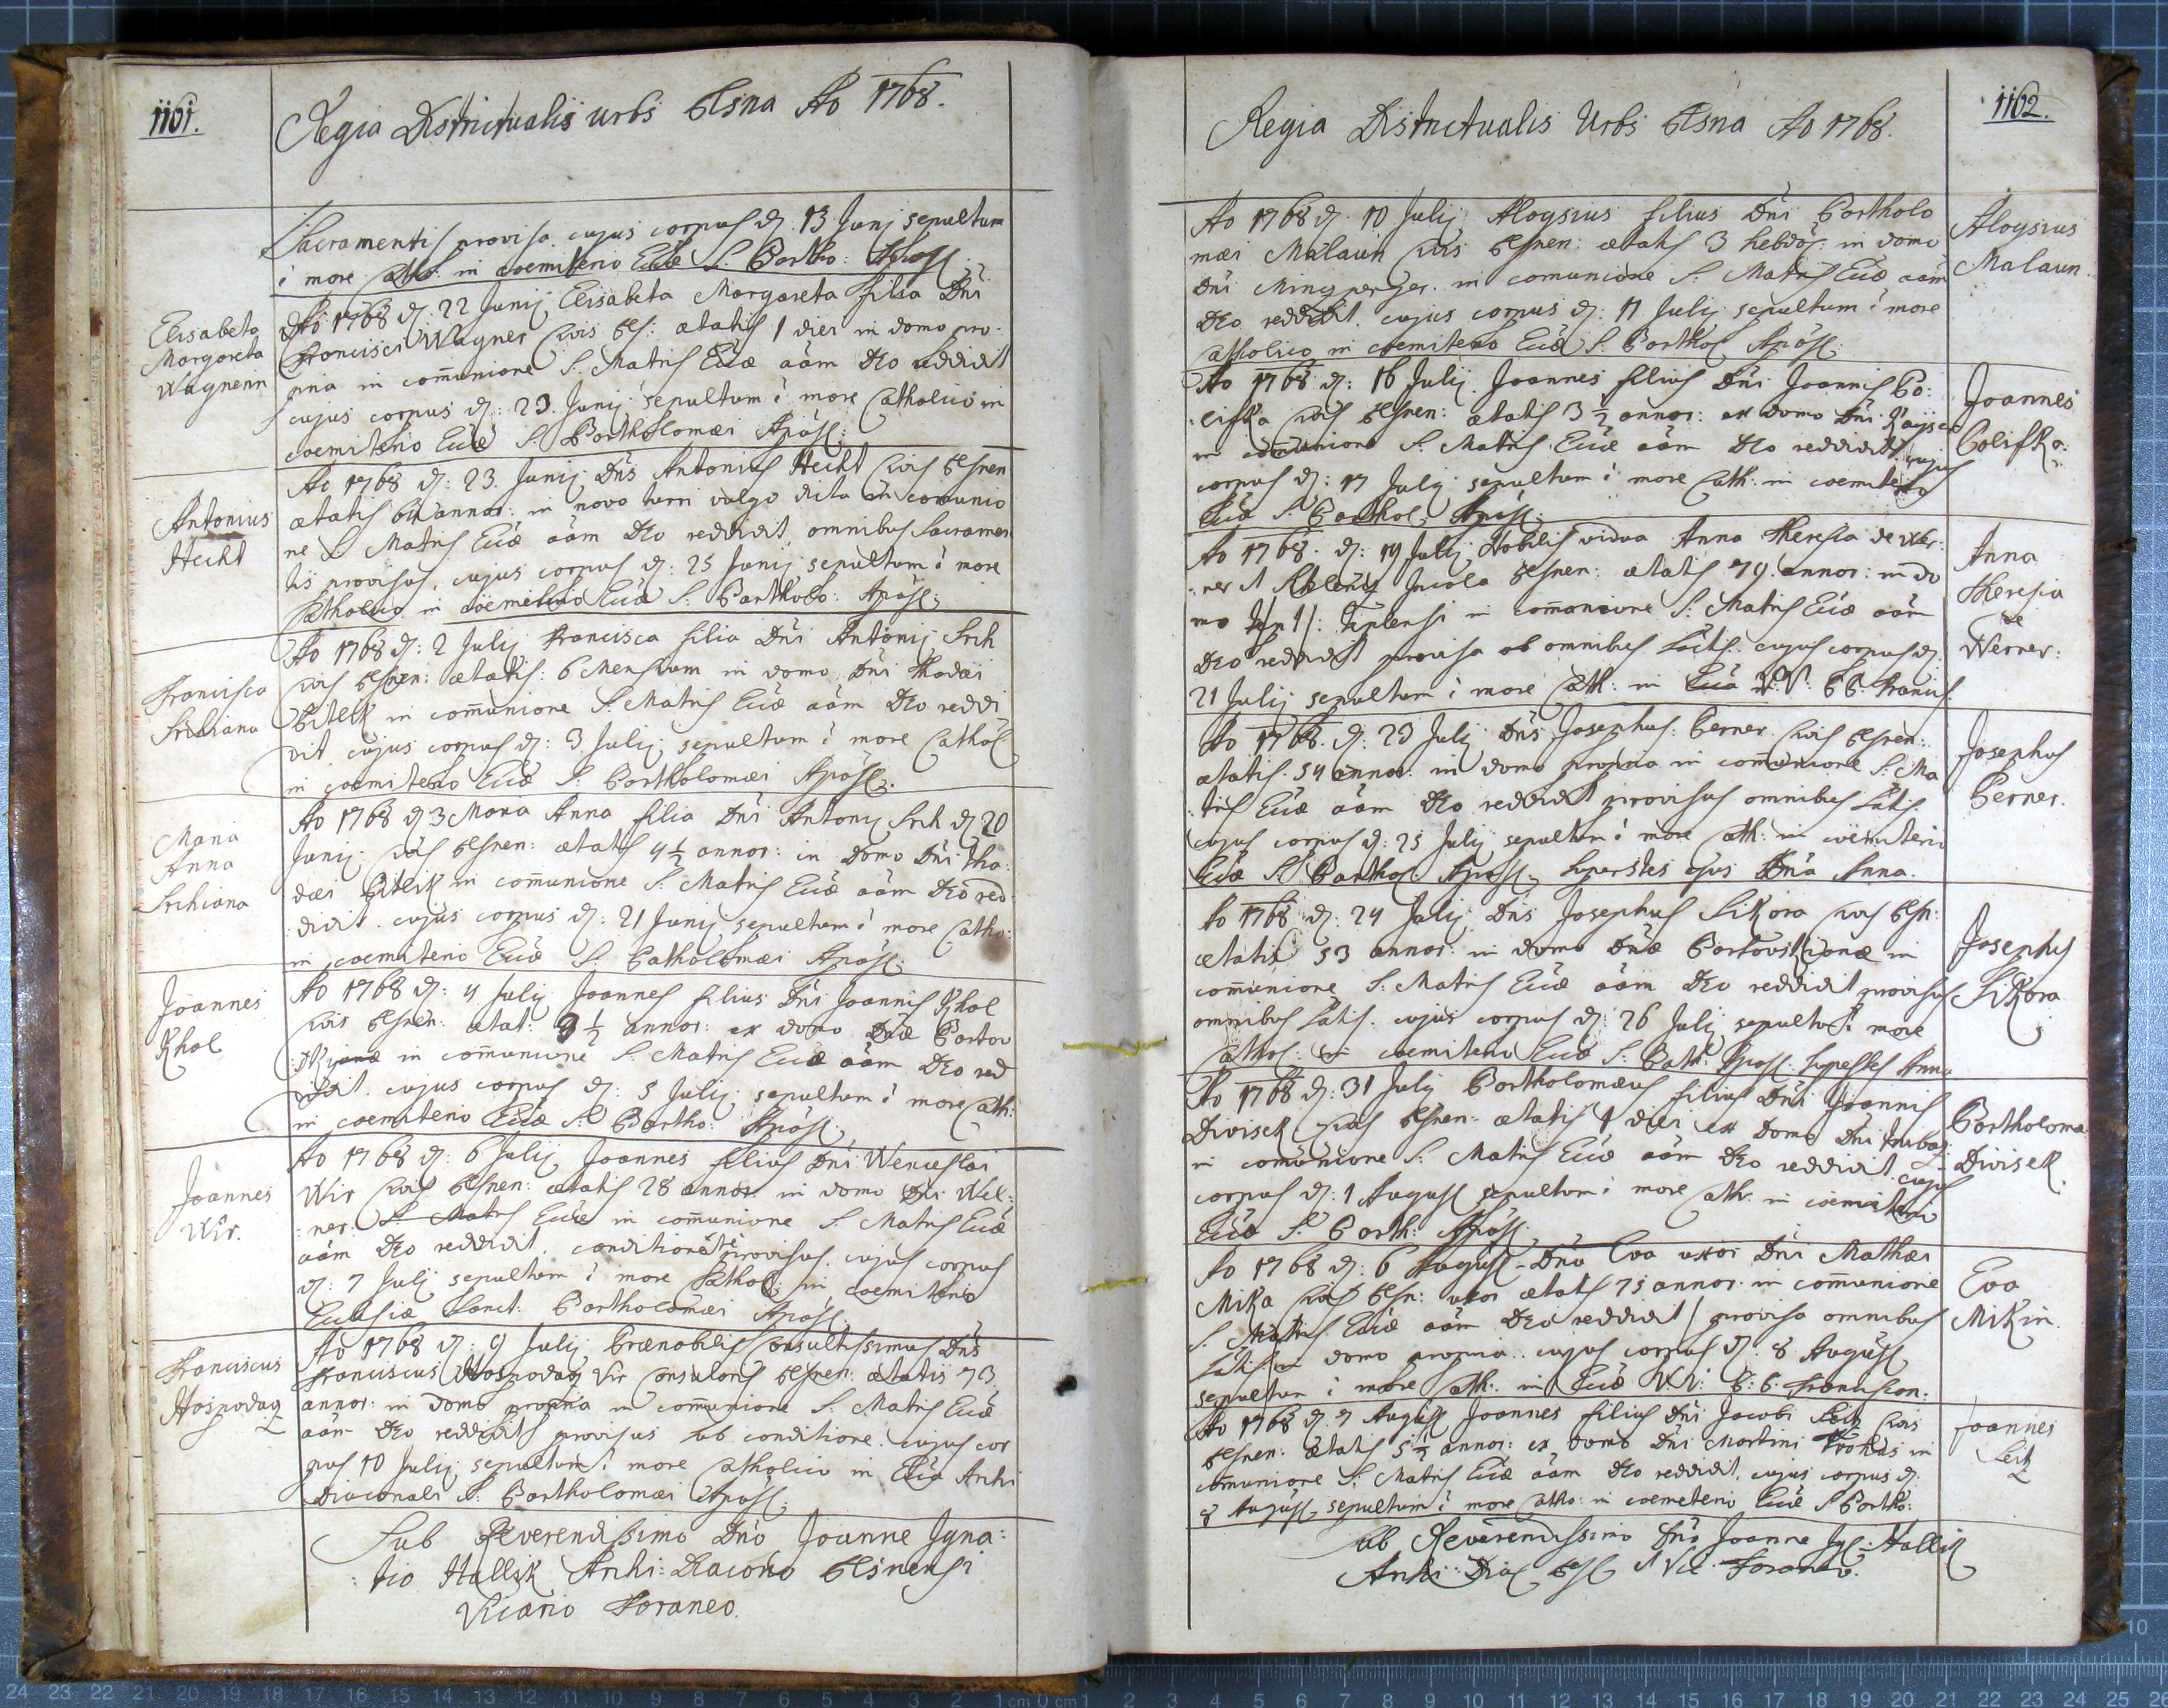 1161.
Regia Districtualis urbs Plsna Ao 1768.
Sacramentis provisa cujus corpus d. 13 Junj sepultum
i more Cath: in coemiterio Eccle S: Bartho: Apost:
Elisabeta
Margareta
Wagnerin
Ao 1768 d: 22 Junij Elisabeta Margareta filia Dni
Francisci Wagner Civis Pls: ætatis 1 diei in domo pro:
pria in comunione S: Matris Ecclæ aam Deo reddidit
cujus corpus d: 23. Junij sepultum i more Catholico in
coemiterio Ecclæ S: Bartholomæi Apost:
Antonius
Hecht
Ao 1768 d: 23. Junij Dns Antonius Hecht Civis Plsnen
ætatis annor: in novo turri vulgo dicta in comunio
ne S: Matris Ecclæ aam Deo reddidit, omnibus Sacramen
tis provisus, cujus corpus d: 25 Junij sepultum i more
Catholico in coemiterio Ecclæ S: Bartholo: Apost:
Francisca
Srchiana
Ao 1768 d: 2 Julij Francisca filia Dni Antonij Srch
Civis Plsnen: ætatis: 6 Mensium in domo Dni Thadæi
Bitlik in comunione S: Matris Ecclæ aam Deo reddi
dit, cujus corpus d: 3 Julij sepultum i more Cathol
in coemiterio Ecclæ S: Bartholomæi Apost:
Maria
Anna
Srchiana
Ao 1768 d 3 Maria Anna filia Dni Antonij Srch d 20
Junij Civis Plsnen: ætatis 4 1/2 annor: in Domo Dni Tha:
dæi Bitlik in comunione S: Matris Ecclæ aam Deo red
didit. cujus corpus d: 21 Junij sepultum i more Catho:
in coemiterio Ecclæ S: Batholomæi Apost:
Joannes
Khol
Ao 1768 d: 4 Julij Joannes filius Dni Joannis Khol
Civis Plsnen: ætat: 3 1/2 annor: ex domo Dnæ Bartov
skijanæ in comunione S: Matris Ecclæ aam Deo red
didit. cujus corpus d: 5 Julij sepultum i more Cath:
in coemiterio Ecclæ S: Bartho: Apost:
Joannes
Wir.
Ao 1768 d: 6 Julij Joannes filius Dni Wenceslai
Wir Civis Plsnen: ætatis 28 annor: in domo Dni Wel:
ner: S: Matris Ecclæ in comunione S: Matris Ecclæ
aam Deo reddidit. conditionate provisus. cujus corpus
d: 7 Julij sepultum i more Cathol: in coemiterio
Ecclesiæ Sanct: Bartholomæi Apost
Franciscus
Hospodaꝛ
Ao 1768 d: 9 Julij Prænobilis Consultissimus Dns
Franciscus Hospodaꝛ Vir Consularis Plsnen: ætatis 73
annor: in domo propria in comunione S: Matris Ecclæ
aam Deo reddidit provisus sub conditione. cujus cor
pus 10 Julij sepultum i more Catholico in Ecclia Archi
Diaconali S: Bartholomæi Apost:
Sub Reverendissimo Dno Joanne Igna:
tio Hallik Archi: Diacono Plsnensi
Vicario Foraneo.
1162.
Regia Districtualis Urbs Plsna Ao 1768.
Ao 1768 d: 10 Julij Aloysius filius Dni Bartholo
mæi Malaun Civis Plsnen: ætatis 3 hebdos: in domo
Dni Mingperger. in comunione S: Matris Ecclæ aam
Deo reddidit. cujus corpus d: 11 Julij sepultum i more
Catholico in coemiterio Ecclæ S: Barthol Apost:
Aloysius
Malaun
Ao 1768 d: 16 Julij Joannes filius Dni Joannis Bo:
lifka Civis Plsnen: ætatis 3 1/2 annor: ex domo Dni Kayser
in comunione S: Matris Ecclæ aam Deo reddidit cujus
corpus d: 17 Julij sepultum i more Cath: in coemiterio
Ecclæ S: Barthol: Apost:
Joannes
Bolifka:
Ao 1768. d: 19 Julij Nobilis vidua Anna Theresia de Wer:
ner Incola Plsnen: ætatis 79. annor: in do
mo Teplensi in comunione S: Matris Ecclæ aam
Deo reddidit provisa ab omnibus Sactis. cujus corpus d:
21 Julij sepultum i more Cath: in Ecclia PP. Francis
Anna
Theresia
de
Werner:
Ao 1768. d: 23 Julij Dns Josephus Berner Civis Plsnen:
ætatis. 54 annor: in domo propria in comunione S: Ma
tris Ecclæ aam Deo reddidit provisus omnibus Sactis.
cujus corpus d: 25 Julij sepultum i more Cath: in coemiterio
Ecclæ S: Barthol: Apost: superstes ejus Dna Anna.
Josephus
Berner.
Ao 1768 d: 24 Julij Dns Josephus Sikora Civis Plsn:
ætatis 53 annor: in domo Dnæ Bartovskijanæ in
comunione S: Matris Ecclæ aam Deo reddidit provisus
omnibus Sactis. cujus corpus d: 26 Julij sepultu i more
Cathol: in coemiterio Ecclæ S: Barth: Apost: superstes Anna
Josephus
Sikora
Ao 1768 d: 31 Julij Bartholomæus filius Dni Joannis
Divisek Civis Plsnen: ætatis 1 diei ex Domo Dni
in comunione S: Matris Ecclæ aam Deo reddidit cujus
corpus d: 1 August sepultum i more Cath: in coemiterio
Ecclæ S: Barth: Apost:
Bartholomæ
Divisek.
Ao 1768 d: 6 August Dna Eva uxor Dni Mathæi
Mika Civis Plsn: uxor ætatis 75 annor. in comunione
S. Matris Ecclæ aam Deo reddidit provisa omnibus
Sactis in domo propria. cujus corpus d: 8 August
sepultum i more Cath: in Ecclæ PP: Franciscan:
Eva
Mikin.
Ao 1768 d. 7 August Joannes filius Dni Jacobi Seitz Civis
Plsnen: ætatis 5 1/2 annor: ex domo Dni Martini in
comunione S: Matris Ecclæ aam Deo reddidit, cujus corpus d:
8 August sepultum i more Catho: in coemeterio Ecclæ S Bartho:
Joannes
Seitz
sub Reverendissimo Dno Joanne Ig: Hallik
Archi: Dia: Plsn Vic. Foraneo.